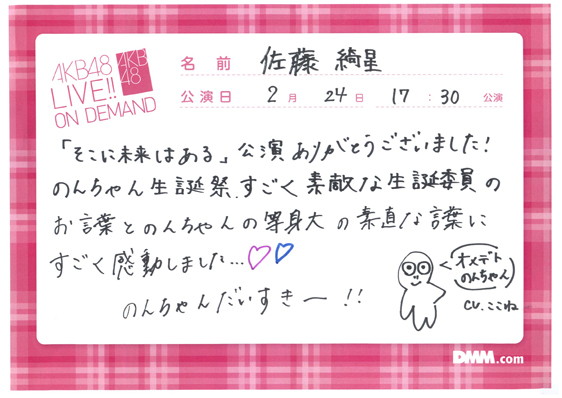 AKB48
LIVE!!
ON DEMAND
AKB
48
名前 佐藤 綺星
公演日 2月 24日 17:30 公演
「そこに未来はある」公演ありがとうございました!
のんちゃん生誕祭、すごく素敵な生誕委員の
お言葉とのんちゃんの等身大の素直な言葉に
すごく感動しました...♡♡
のんちゃんだいすきー!!
オメデト
のんちゃん
CV.ここね
DMM.com